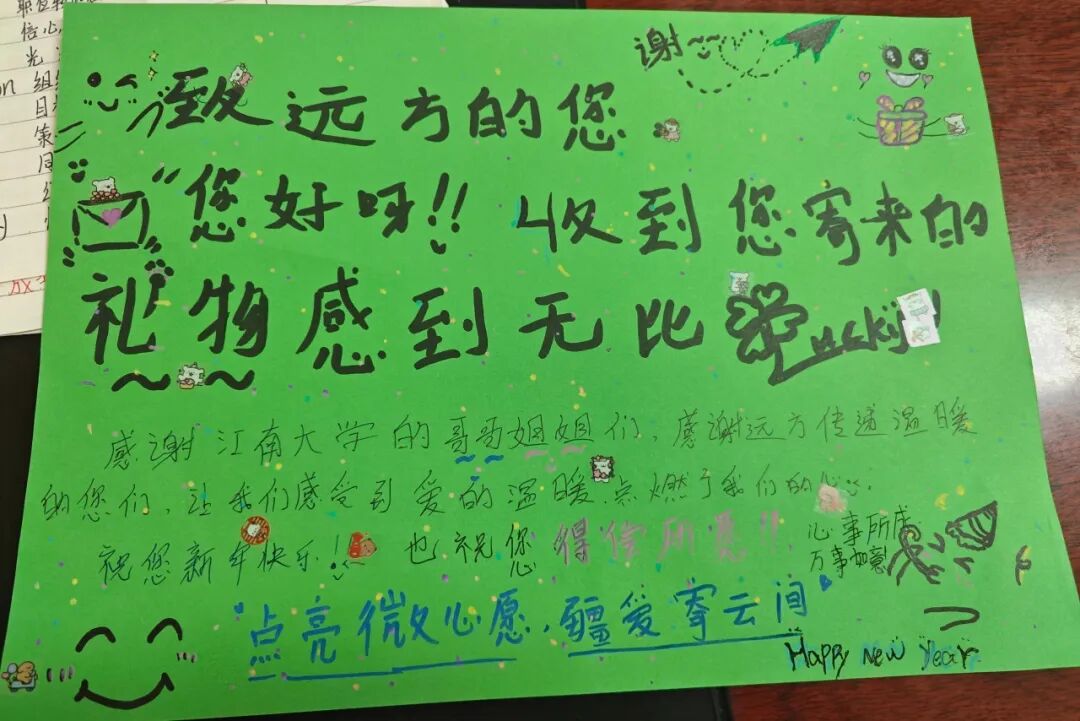 谢~~
致远方的您
"您好呀!! 收到您寄来的
礼物感到无比 Lucky!"
感谢江南大学的哥哥姐姐们,感谢远方传递温暖
的您们,让我们感受到爱的温暖点燃了我们的心.
祝您新年快乐! 也祝您 得偿所愿!! 心事所成
万事如意
"点亮微心愿,疆爱寄云间"
Happy New Year
职位
信心
光
组
目
策
同